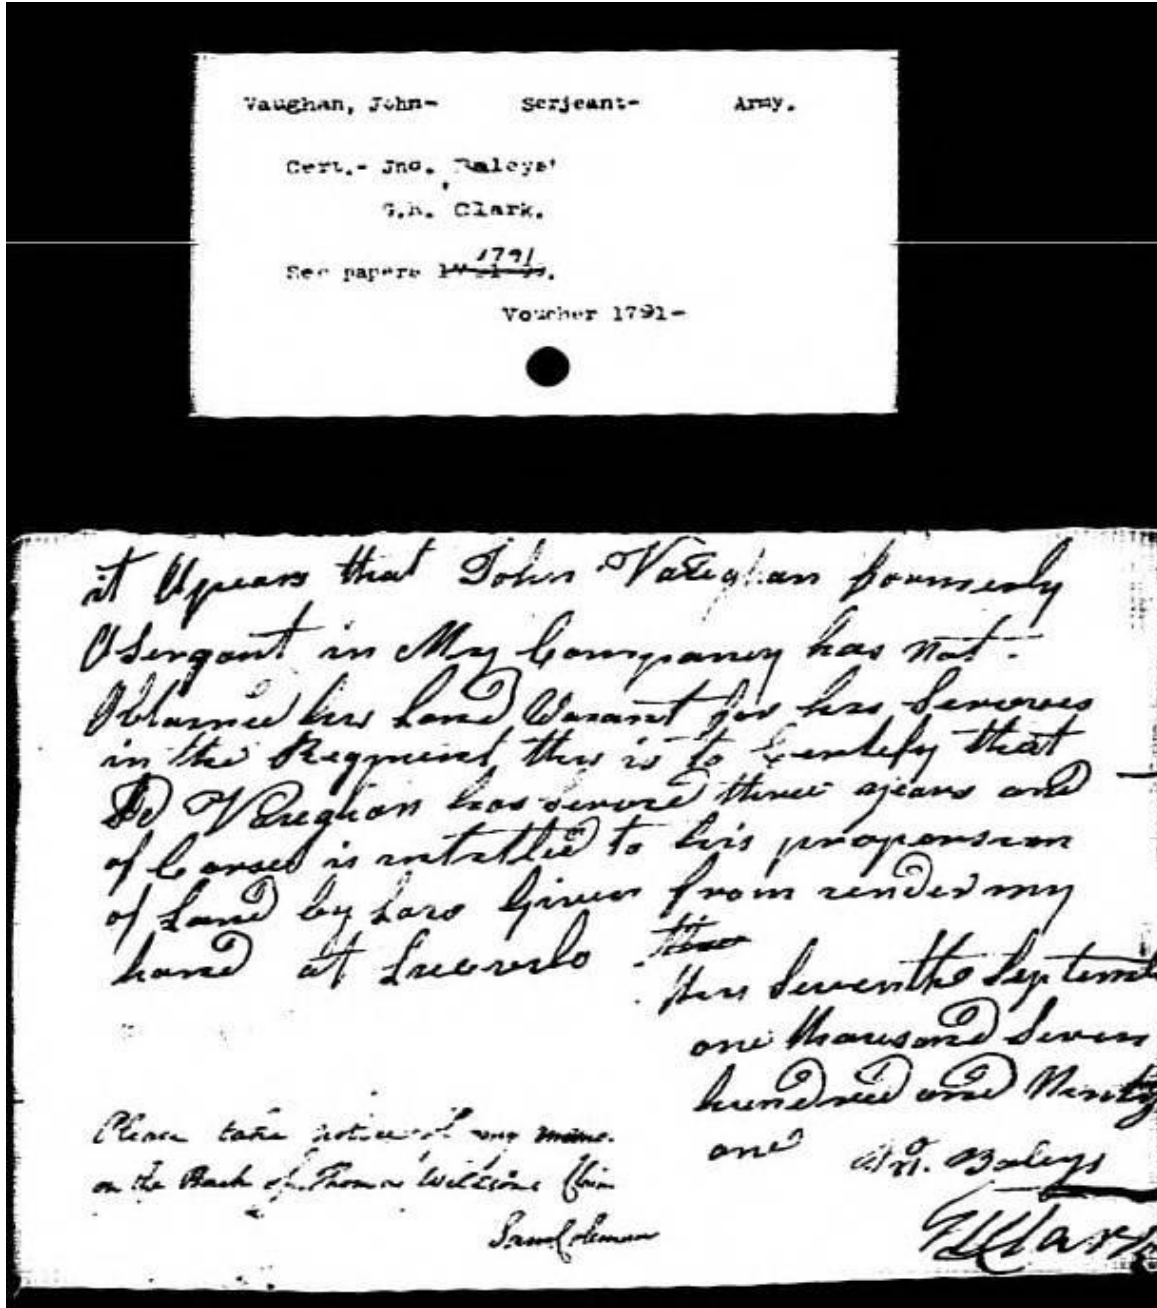 Vaughan, John- Serjeant- Army.
Cert.- Jno. Baleys'
G.R. Clark.
See papers 1791
Voucher 1791-
it Apears that John Vaughan formerly
A Sergant in My Company has not
Obtained his Land Warant for his Services
in the Regment this is to Certefy that
Sd Vaughan has served three years and
of Corse is intitled to his proporsion
of Land by Law Given from under my
hand at
this Seventh Septemb
one thousand Seven
hundred and Ninty
one Jno. Baleys
GR Clark
Please take notice of my memo.
on the Back of Thomas Claim
Sam Coleman